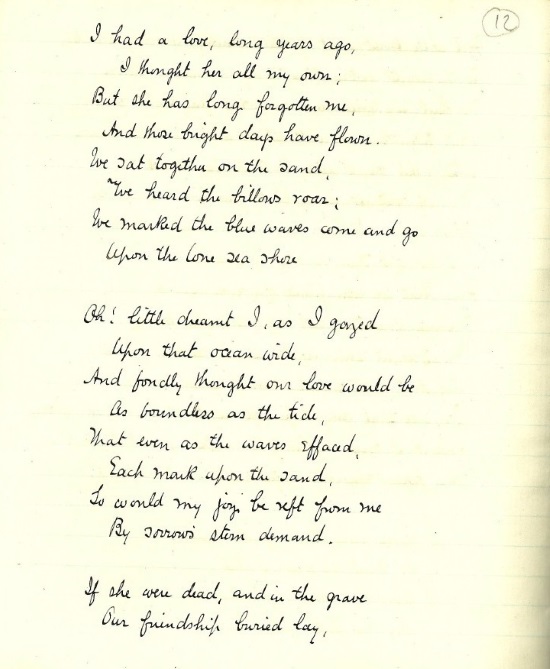 12
I had a love, long years ago,
I thought her all my own;
But she has long forgotten me,
And those bright days have flown.
We sat together on the sand,
We heard the billows roar;
We marked the blue waves come and go
Upon the lone sea shore

Oh! little dreamt I, as I gazed
Upon that ocean wide,
And fondly thought our love would be
As boundless as the tide,
That even as the waves effaced,
Each mark upon the sand,
So would my joys be reft from me
By sorrow's stern demand.

If she were dead, and in the grave
Our friendship buried lay,